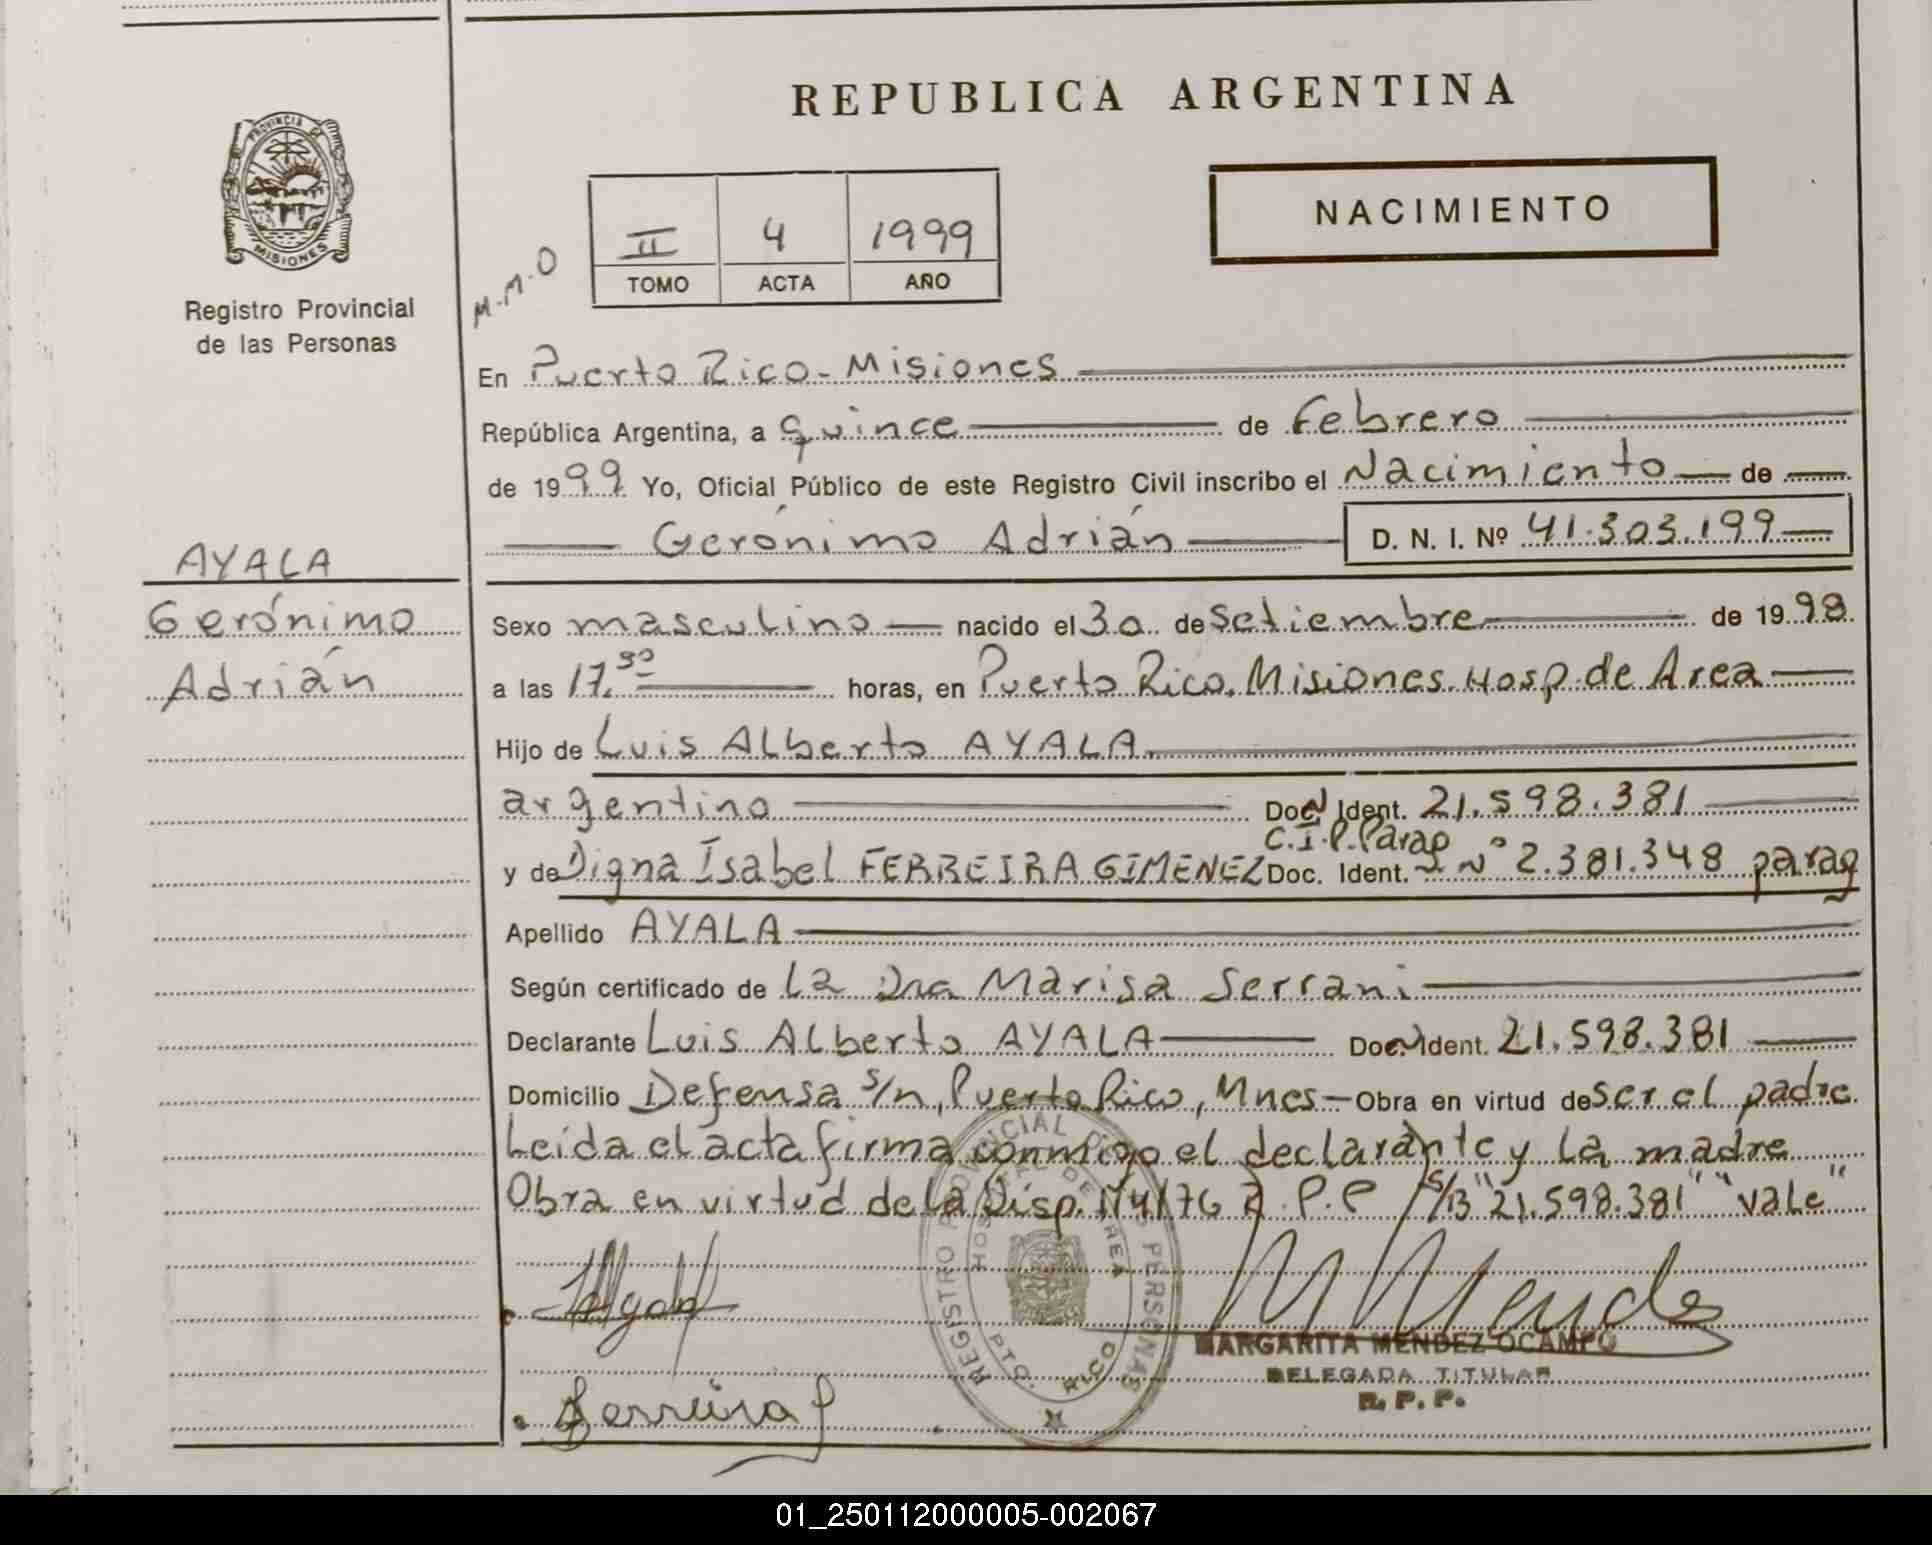 REPUBLICA ARGENTINA
PROVINCIA DE MISIONES
Registro Provincial
de las Personas
NACIMIENTO
M.M.O
II 4 1999
TOMO ACTA AÑO
En Puerto Rico - Misiones
República Argentina, a quince de Febrero
de 1999 Yo, Oficial Público de este Registro Civil inscribo el Nacimiento de
Gerónimo Adrián D. N. I. Nº 41.303.199
AYALA
Gerónimo
Adrián
Sexo masculino nacido el 30 de Setiembre de 1998
a las 17.30 horas, en Puerto Rico. Misiones. Hosp. de Area
Hijo de Luis Alberto AYALA
argentino Doc. Ident. 21.598.381
C.I.P. Parag
y de Digna Isabel FERREIRA GIMENEZ Doc. Ident. Nº 2.381.348 parag
Apellido AYALA
Según certificado de la Dra Marisa Serrani
Declarante Luis Alberto AYALA Doc. Ident. 21.598.381
Domicilio Defensa s/n, Puerto Rico, Mnes - Obra en virtud de ser el padre
Leída el acta firma conmigo el declarante y la madre
Obra en virtud de la Disp. 174/76 R.P.P S/B "21.598.381" "vale"
REGISTRO PROVINCIAL DE LAS PERSONAS
HOSPITAL DE AREA
PTO. RICO
M Mendez
MARGARITA MENDEZ OCAMPO
DELEGADA TITULAR
R. P. P.
Ferreira
01_250112000005-002067